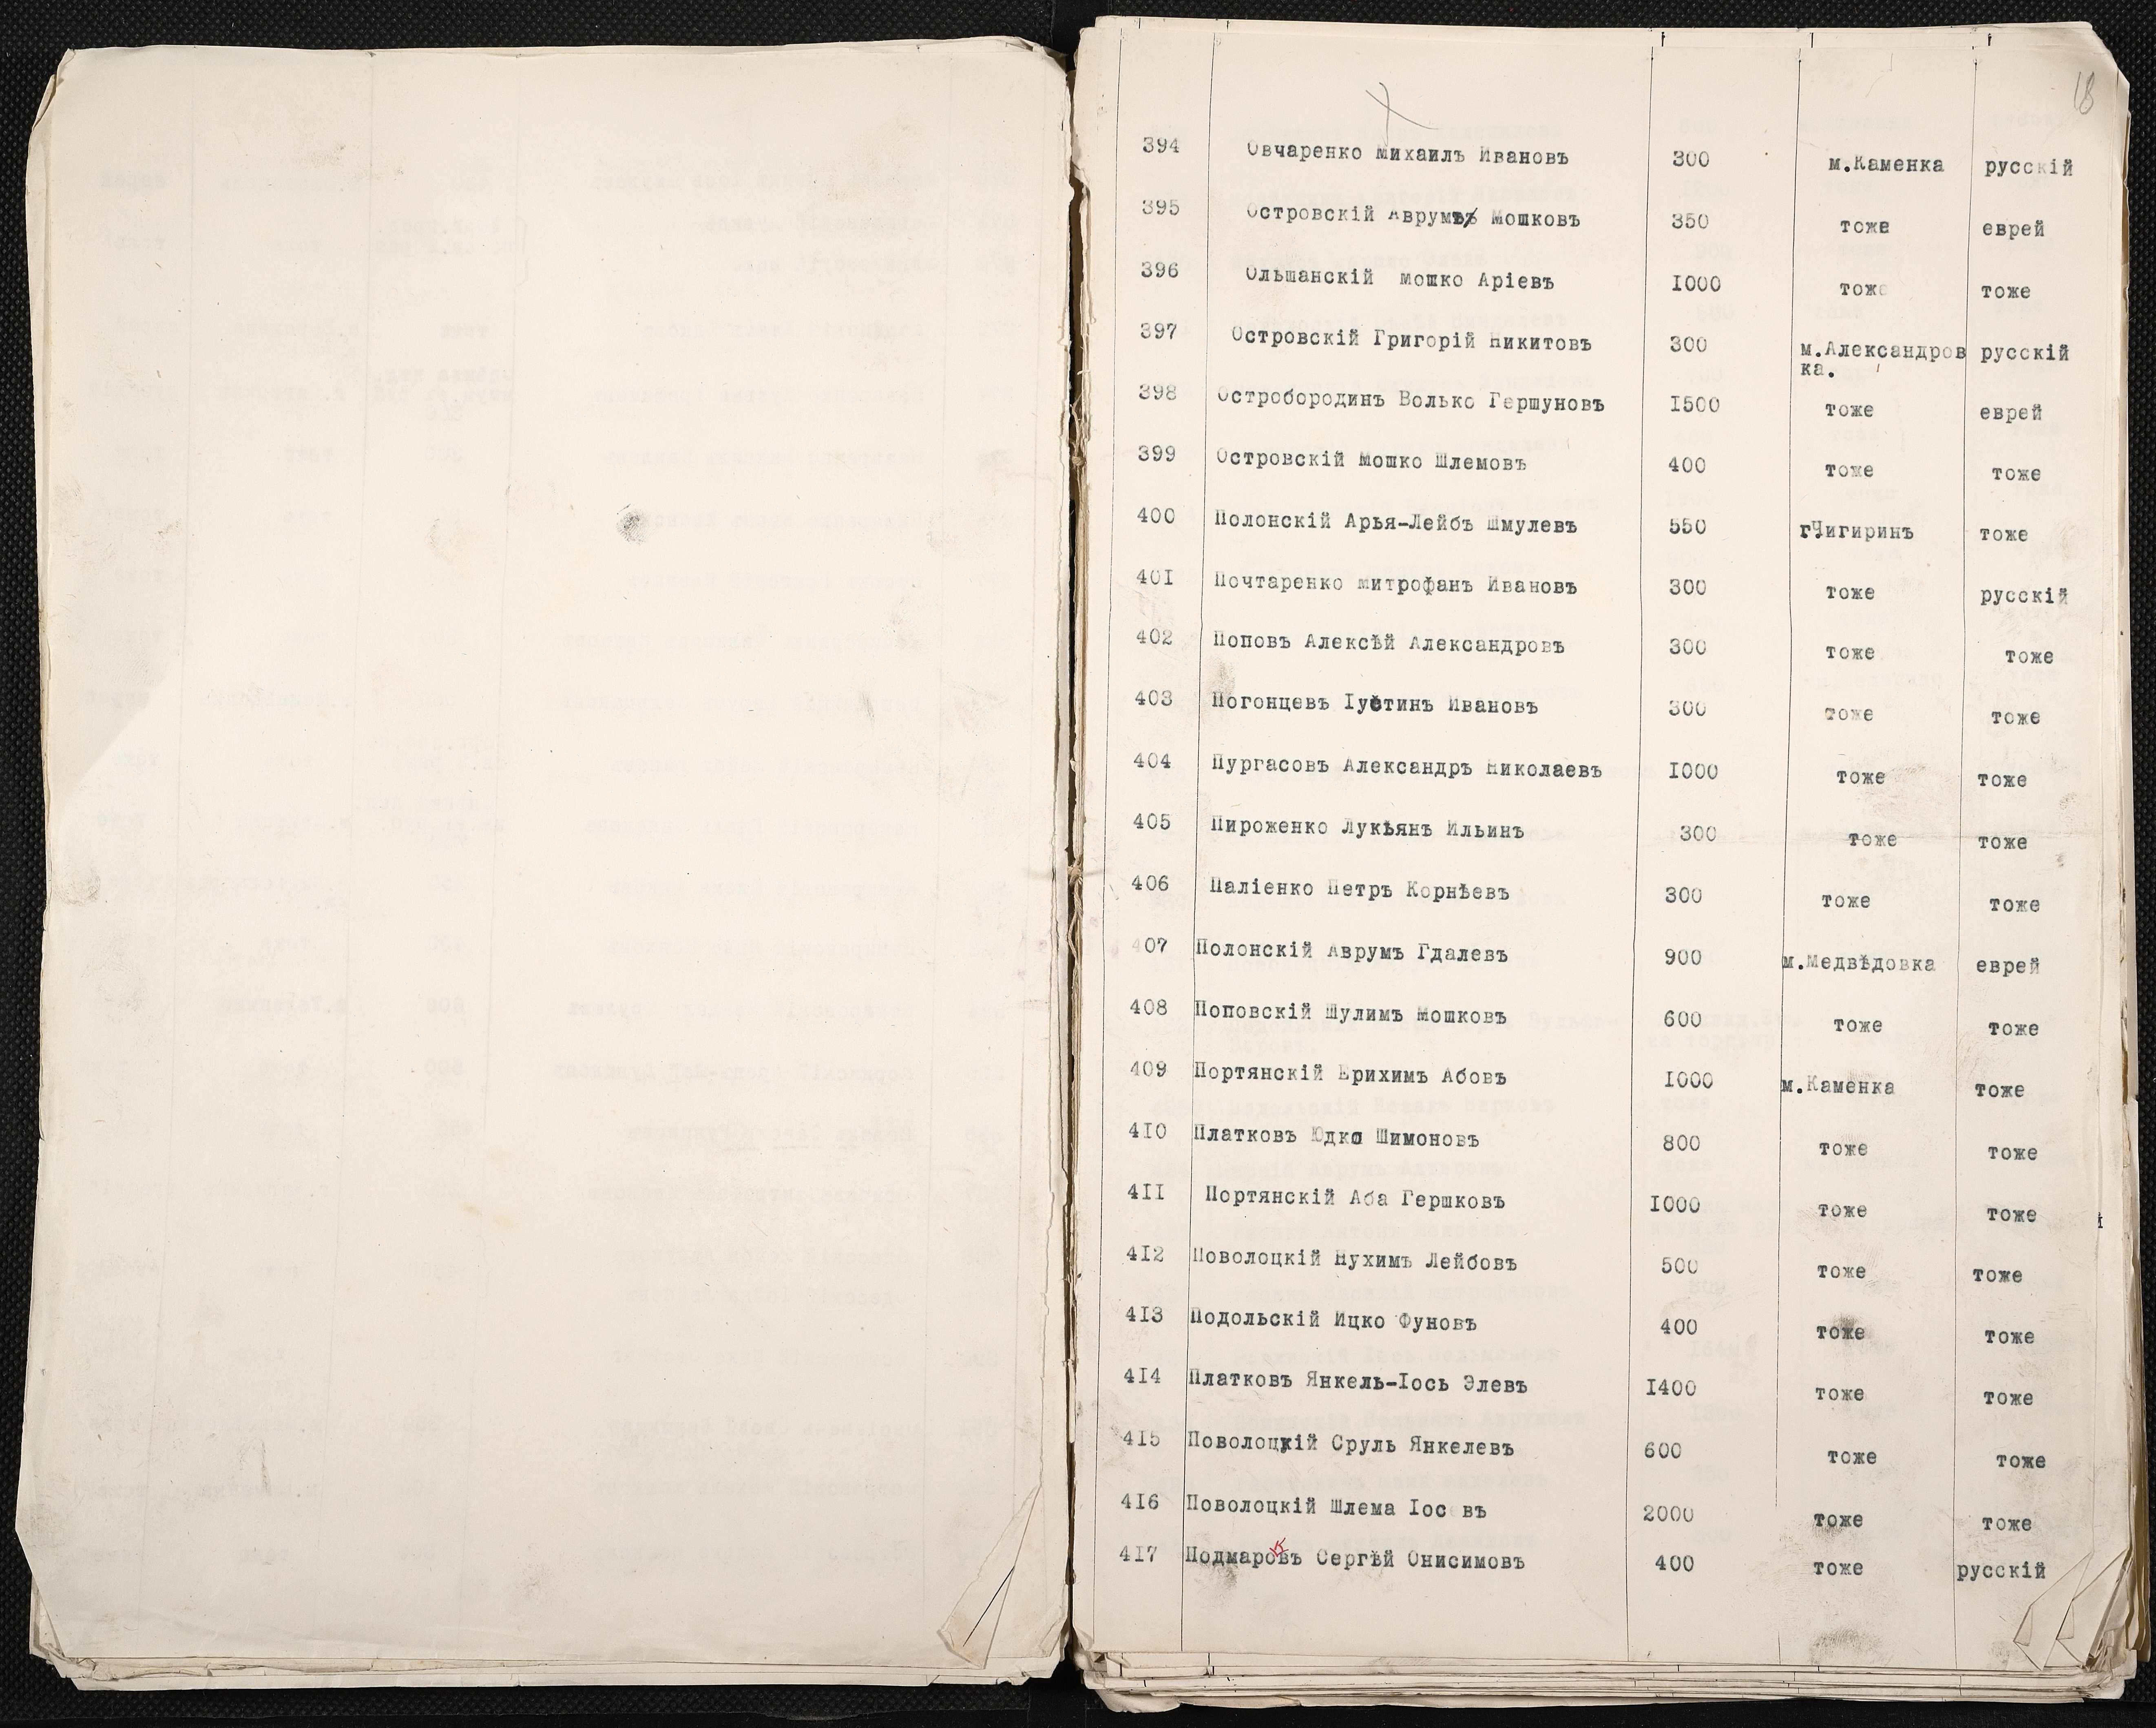 18
394 Овчаренко Михаилъ Ивановъ 300 м.Каменка русскій
395 Островскій Аврумъ Мошковъ 350 тоже еврей
396 Ольшанскій Мошко Аріевъ I000 тоже тоже
397 Островскій Григорій Никитовъ 300 м.Александров русскій
ка.
398 Остробородинъ Волько Гершуновъ I500 тоже еврей
399 Островскій Мошко Шлемовъ 400 тоже тоже
400 Полонскій Арья-Лейбъ Шмулевъ 550 гЧигиринъ тоже
40I Почтаренко Митрофанъ Ивановъ 300 тоже русскій
402 Поповъ Алексѣй Александровъ 300 тоже тоже
403 Погонцевъ Іустинъ Ивановъ 300 тоже тоже
404 Пургасовъ Александръ Николаевъ I000 тоже тоже
405 Пироженко Лукьянъ Ильинъ 300 тоже тоже
406 Паліенко Петръ Корнѣевъ 300 тоже тоже
407 Полонскій Аврумъ Гдалевъ 900 м.Медвѣдовка еврей
408 Поповскій Шулимъ Мошковъ 600 тоже тоже
409 Портянскій Ерихимъ Абовъ I000 м.Каменка тоже
4I0 Платковъ Юдко Шимоновъ 800 тоже тоже
4II Портянскій Аба Гершковъ I000 тоже тоже
4I2 Поволоцкій Нухимъ Лейбовъ 500 тоже тоже
4I3 Подольскій Ицко Фуновъ 400 тоже тоже
4I4 Платковъ Янкель-Іось Элевъ I400 тоже тоже
4I5 Поволоцкій Сруль Янкелевъ 600 тоже тоже
4I6 Поволоцкій Шлема Іос въ 2000 тоже тоже
4I7 Подмаровъ Сергѣй Онисимовъ 400 тоже русскій